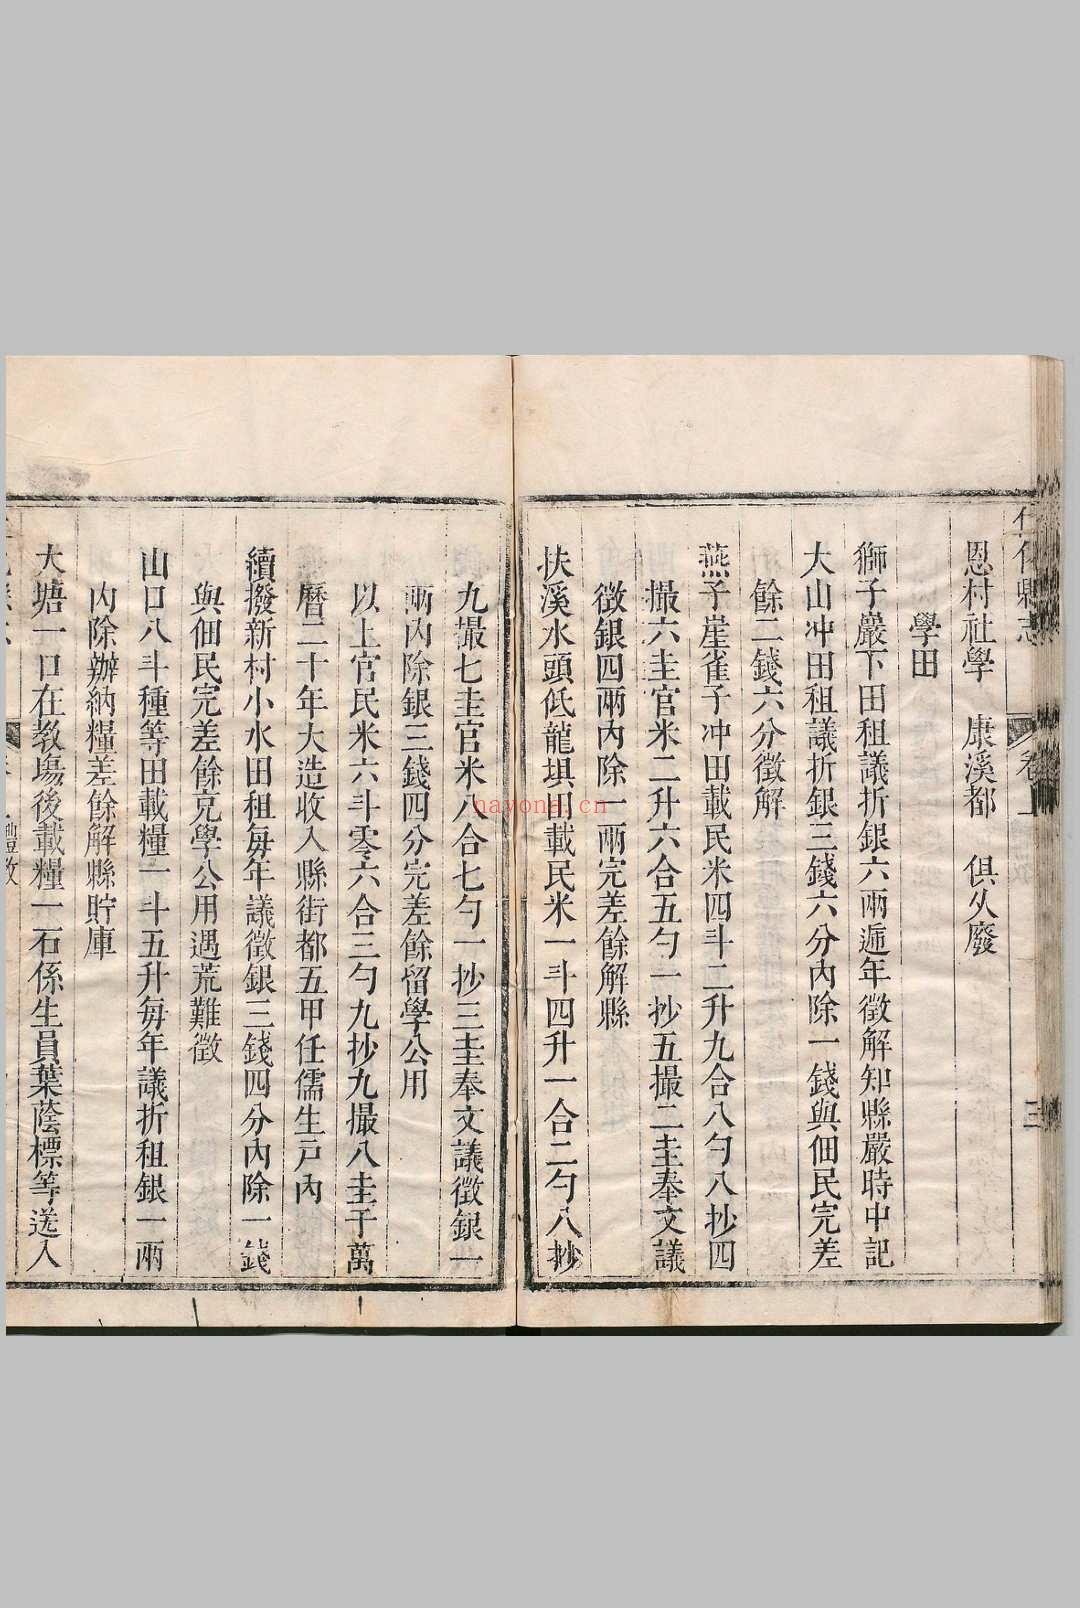 仁化縣志
恩村社學　康溪都　俱久廢
學田
獅子巖下田租議折銀六兩遞年徵解知縣嚴時中記
大山冲田租議折銀三錢六分內除一錢與佃民完差
餘二錢六分徵解
燕子崖雀子冲田載民米四斗二升九合八勺八抄四
撮六圭官米二升六合五勺一抄五撮二圭奉文議
徵銀四兩內除一兩完差餘解縣
扶溪水頭低龍垻田載民米一斗四升一合二勺八抄
九撮七圭官米八合七勺一抄三圭奉文議徵銀一
兩內除銀三錢四分完差餘留學公用
以上官民米六斗零六合三勺九抄九撮八圭于萬
曆二十年大造收入縣街都五甲任儒生戸內
續撥新村小水田租每年議徵銀三錢四分內除一錢
與佃民完差餘充學公用遇荒難徵
山口八斗種等田載糧一斗五升每年議折租銀一兩
內除辦納糧差餘解縣貯庫
大塘一口在教塲後載糧一石係生員葉蔭標等送入
hayona.cn